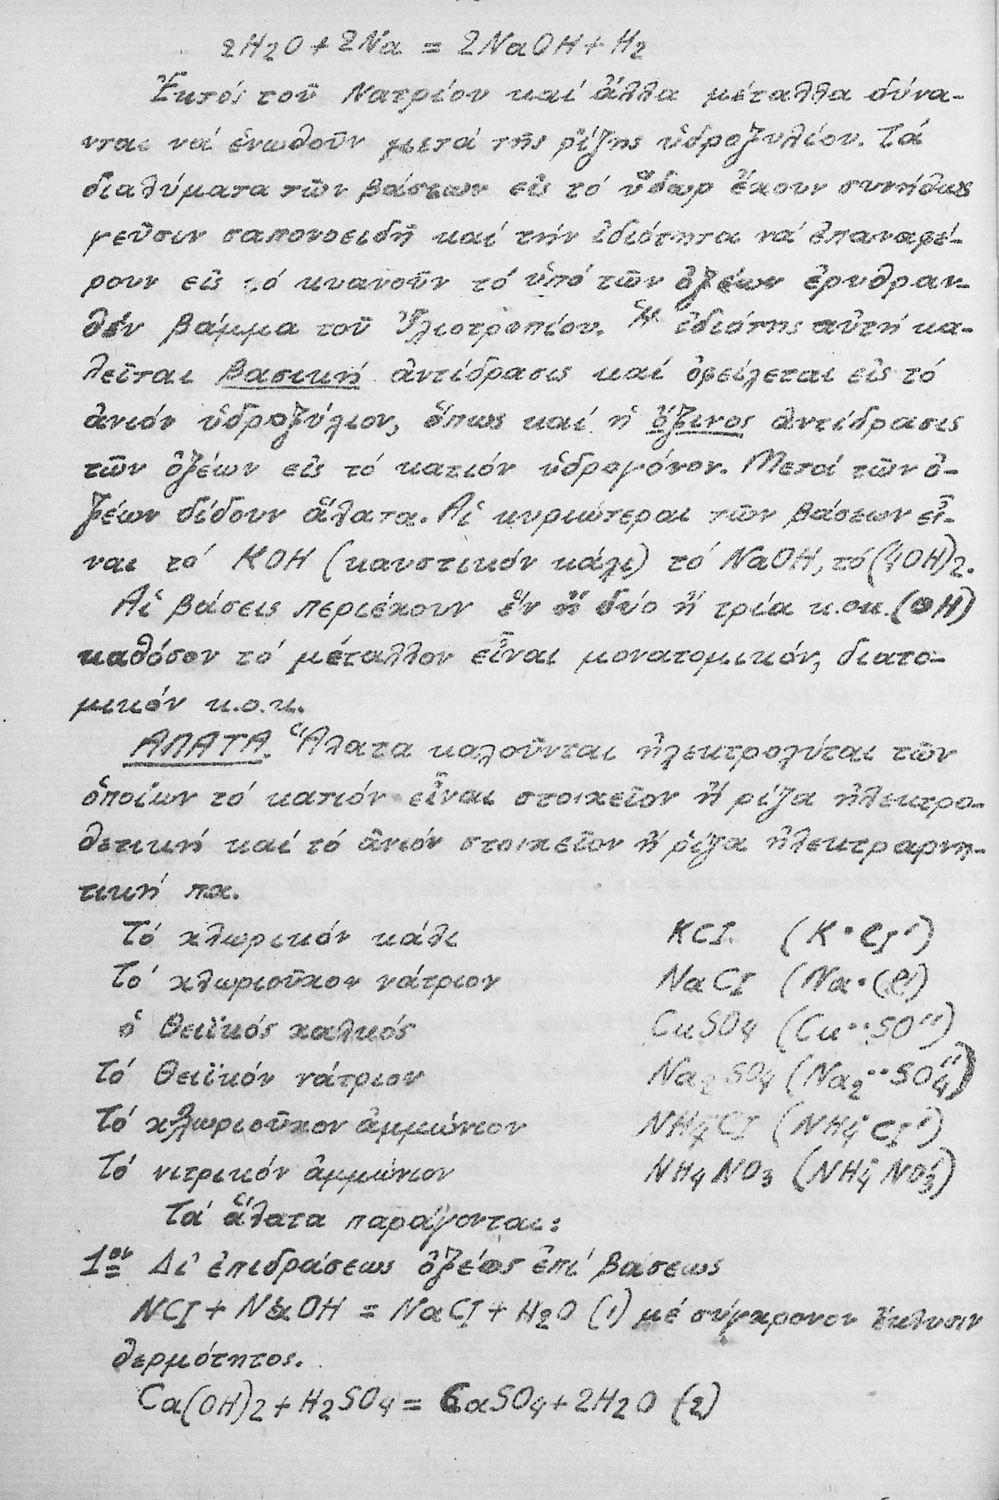 2H2O + 2Na = 2NaOH + H2
Ἐκτός τοῦ Νατρίου καί ἄλλα μέταλλα δύνα-
νται νά ἑνωθοῦν μετά τῆς ρίζης ὑδροξυλίου. Τά
διαλύματα τῶν βάσεων εἰς τό ὕδωρ ἔχουν συνήθως
γεῦσιν σαπονοειδῆ καί τήν ἰδιότητα νά ἐπαναφέ-
ρουν εἰς τό κυανοῦν τό ὑπό τῶν ὀξέων ἐρυθραν-
θέν βάμμα τοῦ Ἡλιοτροπίου. Ἡ ἰδιότης αὐτή κα-
λεῖται βασική ἀντίδρασις καί ὀφείλεται εἰς τό
ἀνιόν ὑδροξύλιον, ὅπως καί ἡ ὄξινος ἀντίδρασις
τῶν ὀξέων εἰς τό κατιόν ὑδρογόνον. Μετά τῶν ὀ-
ξέων δίδουν ἅλατα. Αἱ κυριώτεραι τῶν βάσεων εἶ-
ναι τό KOH (καυστικόν κάλι) τό NaOH, τό (OH)2.
Αἱ βάσεις περιέχουν ἕν ἤ δύο ἤ τρία κ.ο.κ. (OH)
καθόσον τό μέταλλον εἶναι μονατομικόν, διατο-
μικόν κ.ο.κ.
ΑΛΑΤΑ. Ἅλατα καλοῦνται ἠλεκτρολύται τῶν
ὁποίων τό κατιόν εἶναι στοιχεῖον ἤ ρίζα ἠλεκτρο-
θετική καί τό ἀνιόν στοιχεῖον ἤ ρίζα ἠλεκτραρνη-
τική πχ.
Τό χλωρικόν κάλι KCI. (K• CI')
Τό χλωριοῦχον νάτριον NaCI (Na• Cl')
ὁ Θειϊκός χαλκός CuSO4 (Cu•• SO'')
Τό Θειϊκόν νάτριον Na2SO4 (Na2•• SO4'')
Τό χλωριοῦχον ἀμμώνιον NH4CI (NH4• CI')
Τό νιτρικόν ἀμμώνιον NH4NO3 (NH4• NO3')
Τά ἅλατα παράγονται:
1ον Δι' ἐπιδράσεως ὀξέος ἐπί βάσεως
HCI + NaOH = NaCI + H2O (1) μέ σύγχρονον ἔκλυσιν
θερμότητος.
Ca(OH)2 + H2SO4 = CaSO4 + 2H2O (2)